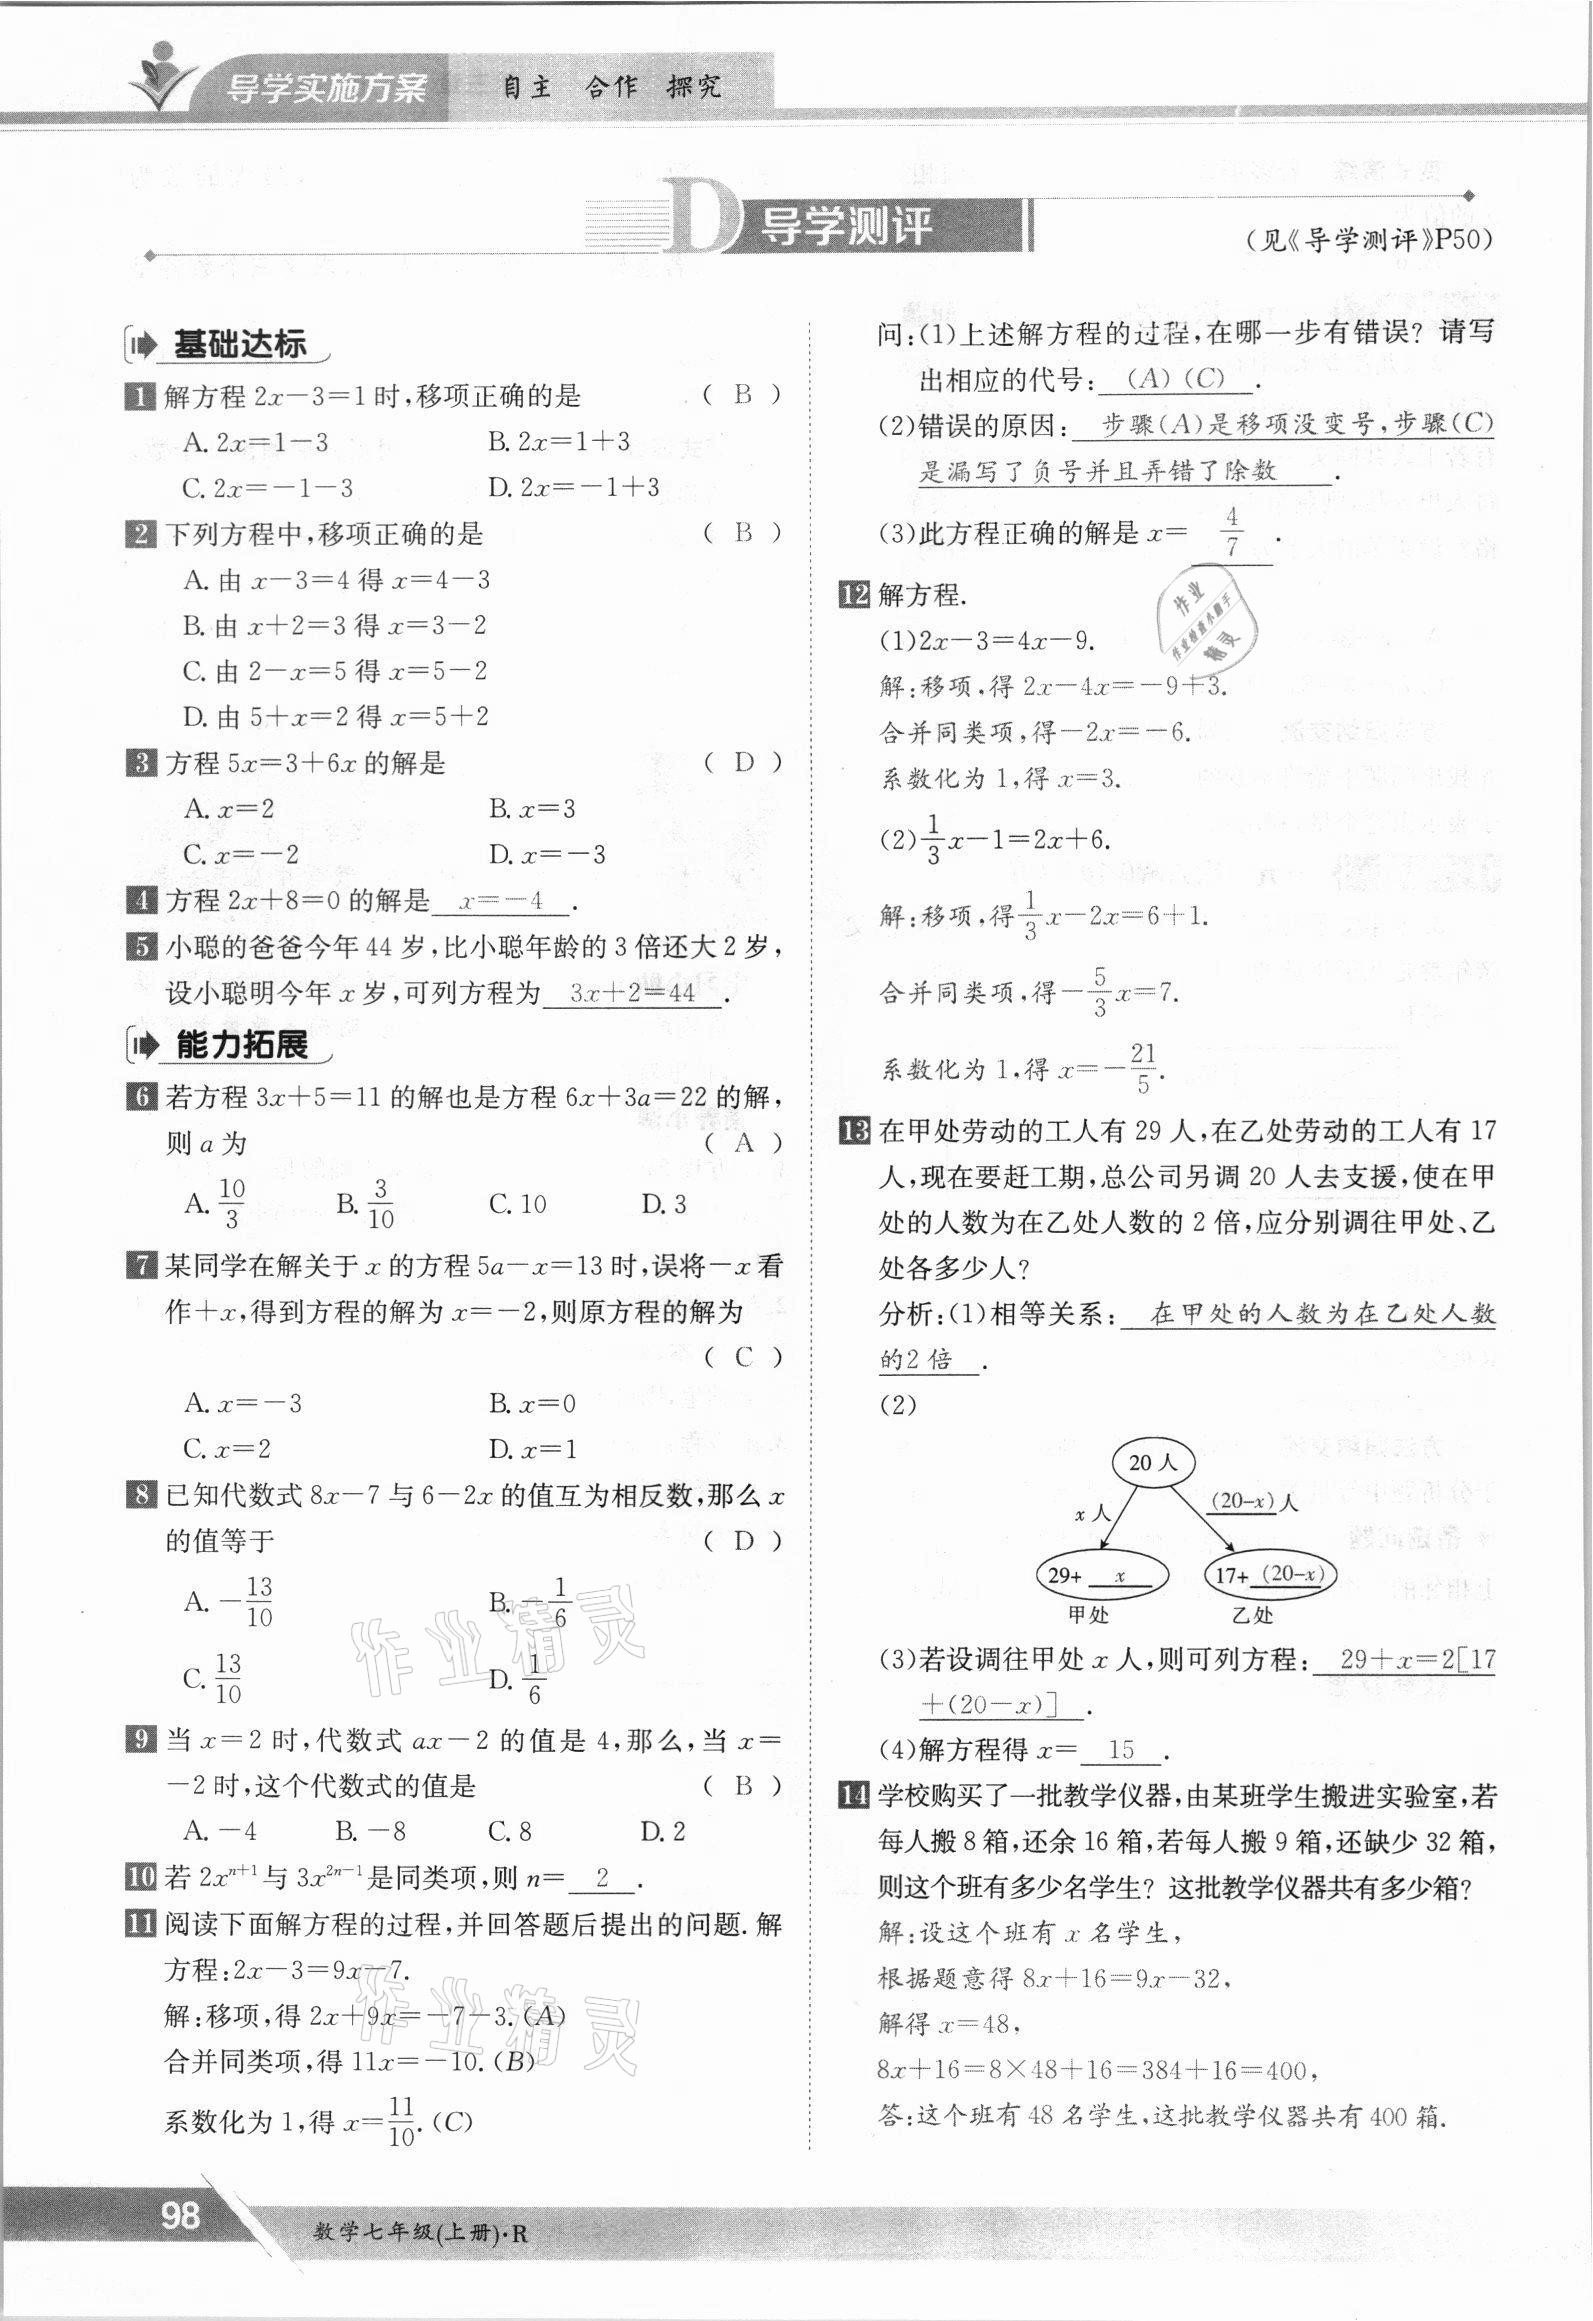 导学实施方案 自主 合作 探究
D 导学测评
(见《导学测评》P50)
基础达标
1 解方程 2x－3＝1 时,移项正确的是 ( B )
A. 2x＝1－3 B. 2x＝1＋3
C. 2x＝－1－3 D. 2x＝－1＋3
2 下列方程中,移项正确的是 ( B )
A. 由 x－3＝4 得 x＝4－3
B. 由 x＋2＝3 得 x＝3－2
C. 由 2－x＝5 得 x＝5－2
D. 由 5＋x＝2 得 x＝5＋2
3 方程 5x＝3＋6x 的解是 ( D )
A. x＝2 B. x＝3
C. x＝－2 D. x＝－3
4 方程 2x＋8＝0 的解是 x＝－4 .
5 小聪的爸爸今年 44 岁,比小聪年龄的 3 倍还大 2 岁,
设小聪明今年 x 岁,可列方程为 3x＋2＝44 .
能力拓展
6 若方程 3x＋5＝11 的解也是方程 6x＋3a＝22 的解,
则 a 为 ( A )
A. 10/3 B. 3/10 C. 10 D. 3
7 某同学在解关于 x 的方程 5a－x＝13 时,误将－x 看
作＋x,得到方程的解为 x＝－2,则原方程的解为
( C )
A. x＝－3 B. x＝0
C. x＝2 D. x＝1
8 已知代数式 8x－7 与 6－2x 的值互为相反数,那么 x
的值等于 ( D )
A. －13/10 B. －1/6
C. 13/10 D. 1/6
9 当 x＝2 时,代数式 ax－2 的值是 4,那么,当 x＝
－2 时,这个代数式的值是 ( B )
A. －4 B. －8 C. 8 D. 2
10 若 2xⁿ⁺¹ 与 3x²ⁿ⁻¹ 是同类项,则 n＝ 2 .
11 阅读下面解方程的过程,并回答题后提出的问题. 解
方程:2x－3＝9x－7.
解:移项,得 2x＋9x＝－7－3. (A)
合并同类项,得 11x＝－10. (B)
系数化为 1,得 x＝11/10. (C)
问:(1)上述解方程的过程,在哪一步有错误? 请写
出相应的代号: (A)(C) .
(2)错误的原因: 步骤(A)是移项没变号,步骤(C)
是漏写了负号并且弄错了除数 .
(3)此方程正确的解是 x＝ 4/7 .
12 解方程.
(1)2x－3＝4x－9.
解:移项,得 2x－4x＝－9＋3.
合并同类项,得－2x＝－6.
系数化为 1,得 x＝3.
(2)1/3 x－1＝2x＋6.
解:移项,得 1/3 x－2x＝6＋1.
合并同类项,得－5/3 x＝7.
系数化为 1,得 x＝－21/5.
13 在甲处劳动的工人有 29 人,在乙处劳动的工人有 17
人,现在要赶工期,总公司另调 20 人去支援,使在甲
处的人数为在乙处人数的 2 倍,应分别调往甲处、乙
处各多少人?
分析:(1)相等关系: 在甲处的人数为在乙处人数
的2 倍 .
(2)
20 人
x 人 (20-x)人
29+ x 17+ (20-x)
甲处 乙处
(3)若设调往甲处 x 人,则可列方程: 29＋x＝2[17
＋(20－x)] .
(4)解方程得 x＝ 15 .
14 学校购买了一批教学仪器,由某班学生搬进实验室,若
每人搬 8 箱,还余 16 箱,若每人搬 9 箱,还缺少 32 箱,
则这个班有多少名学生? 这批教学仪器共有多少箱?
解:设这个班有 x 名学生,
根据题意得 8x＋16＝9x－32,
解得 x＝48,
8x＋16＝8×48＋16＝384＋16＝400,
答:这个班有 48 名学生,这批教学仪器共有 400 箱.
作业精灵
作业精灵
作业
作业检查小助手
精灵
98
数学七年级(上册)·R